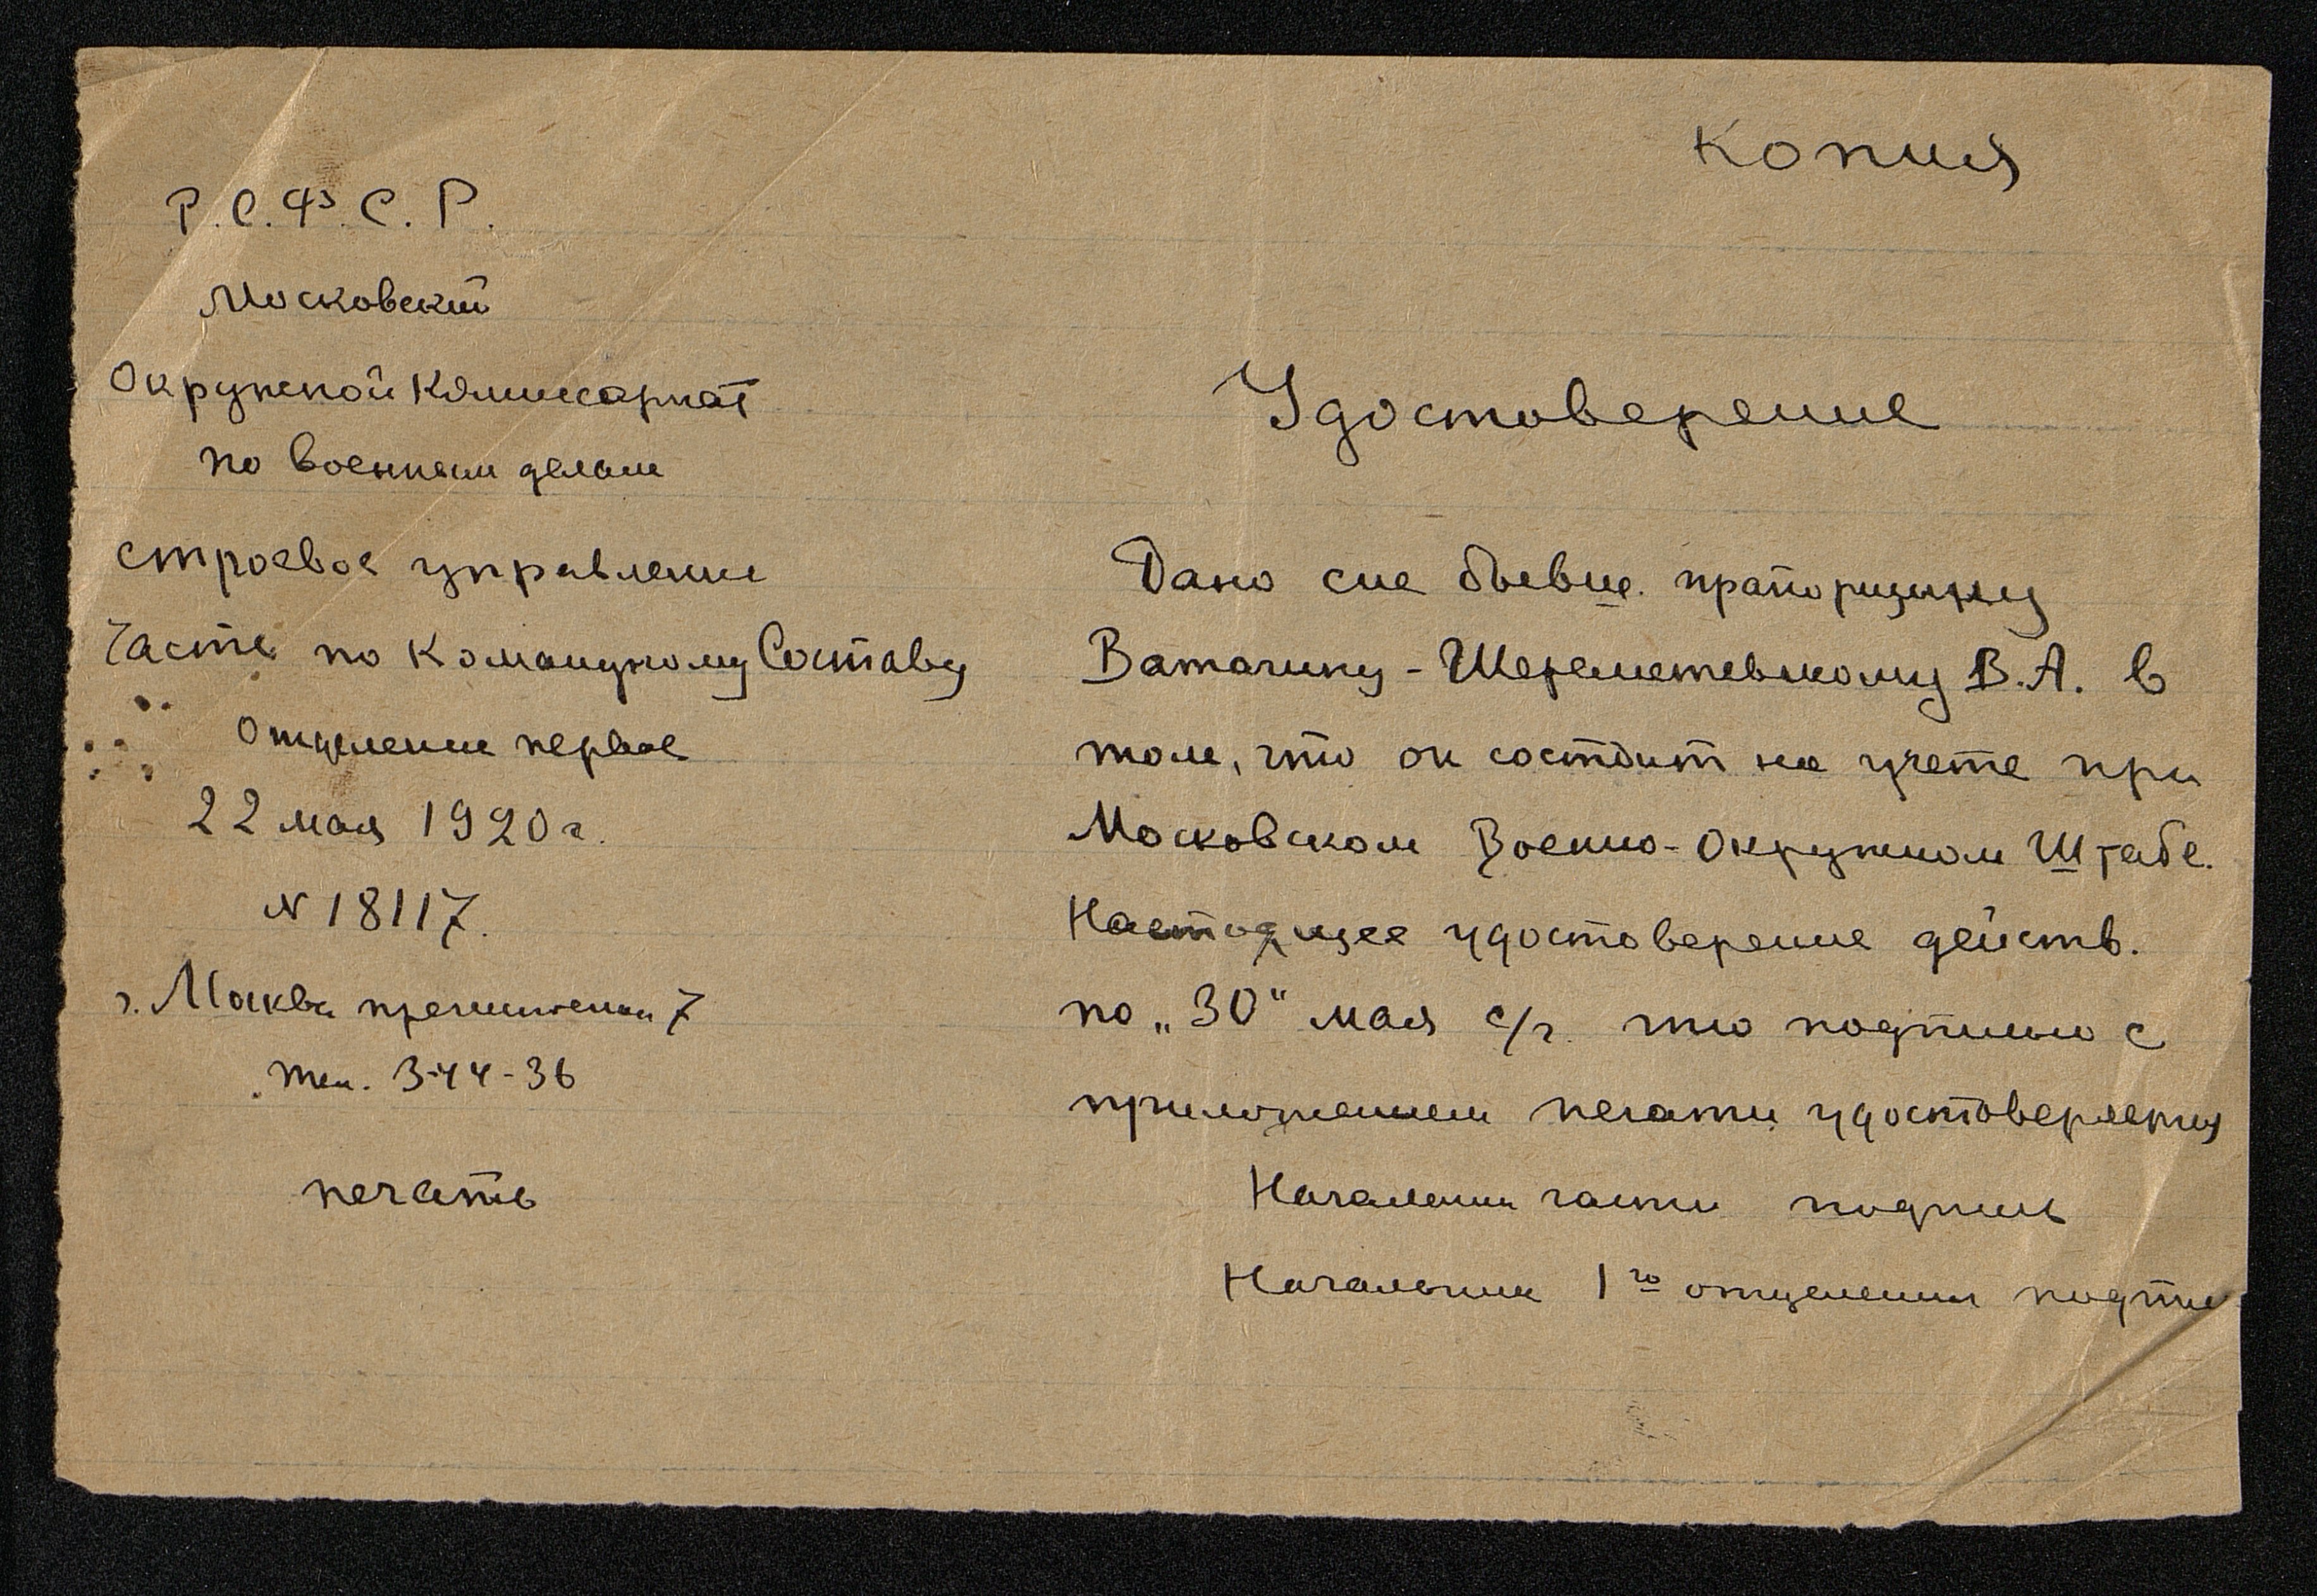 Копия
Р.С.Ф.С.Р.
Московский
Окружной Комиссариат
по военным делам
строевое управление
Часть по Командному Составу
Отделение первое
22 мая 1920 г.
№ 18117.
г. Москва пречистенка 7
тел. 3-44-36
печать
Удостоверение
Дано сие бывше. прапорщику
Ватагину-Шереметевскому В.А. в
том, что он состоит на учете при
Московском Военно-Окружном Штабе.
Настоящее удостоверение действ.
по „30“ мая с/г. что подписью с
приложением печати удостоверяется
Начальник части подпись
Начальник 1го отделения подпись